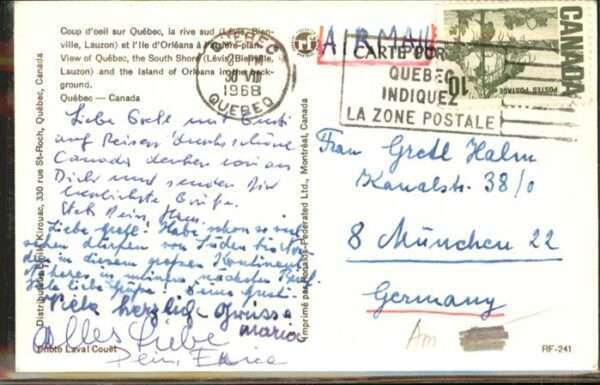 Coup d'oeil sur Québec, la rive sud (Lévis, Bien-
ville, Lauzon) et l'Ile d'Orléans à l'arrière-plan.
View of Québec, the South Shore (Lévis, Bienville,
Lauzon) and the Island of Orleans in the back-
ground.
Québec — Canada
QUEBEC
PM
30 VIII
1968
QUEBEC
AIR MAIL
QUEBEC
INDIQUEZ
LA ZONE POSTALE
CANADA
10
POSTES POSTAGE
Liebe Gretl mit Gusti
auf Reisen durchs schöne
Canada denken wir an
Dich und senden Dir
herzlichste Grüße.
Stets Dein
Liebe Gretl! Habe schon so viel
sehen dürfen von Süden bis Nor
in diesem großen Kontinent
Näheres in meinem nächsten Brief
Viele liebe Grüße! Deine Gusti
Viele herzliche Grüsse
Maria
Alles Liebe
Dein
Frau Gretl Halm
Kanalstr. 38/0
8 München 22
Germany
Am
Kirouac, 330 rue St-Roch, Québec, Canada
Federated Ltd., Montréal, Canada
Photo Laval Couët
RF-241